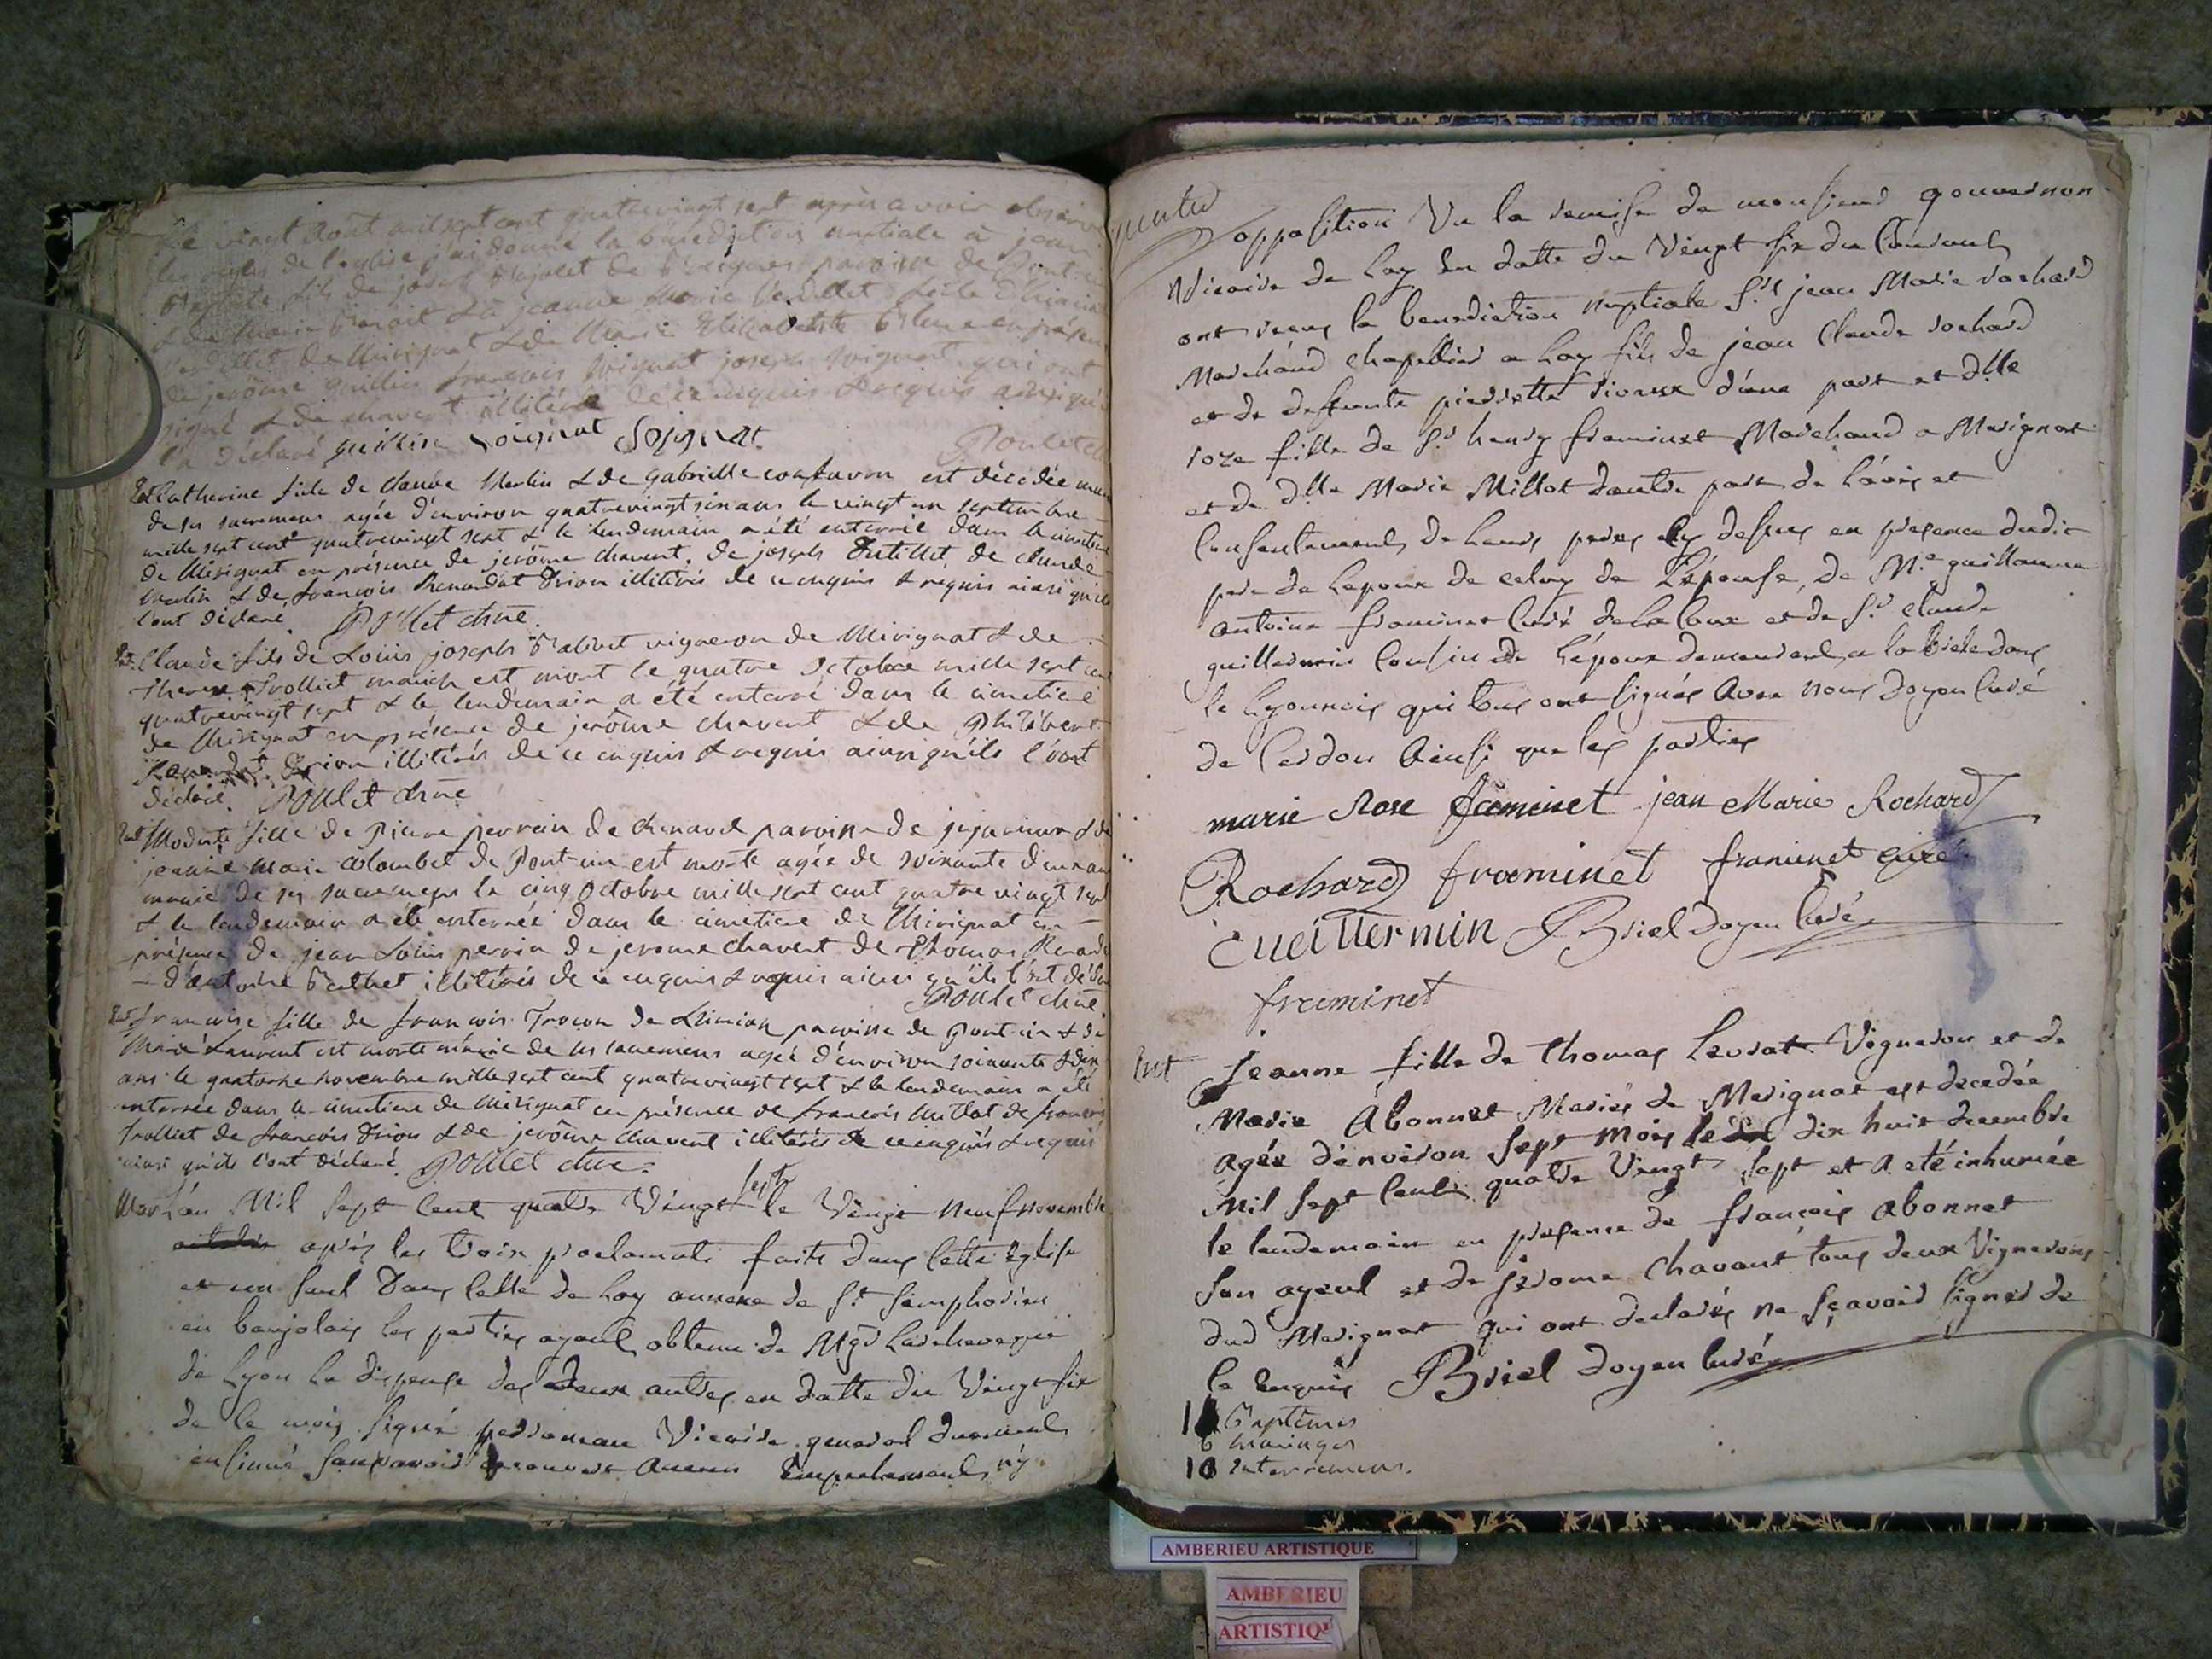 Le vingt Aout mil sept cent quatrevingt sept après avoir observé
les regles de l'eglise j'ai donné la bénédiction nuptiale à jean
fils de joseph de paroisse de Pont
& de marie Benoit & à jeanne Marie fille
de Mérignat & de Marie Elizabeth en présen
de jerôme guillin françois soignat joseph soignat qui ont
signé & de illitéré de ce enquis & requis ainsi qu'il
l'a déclaré guillin soignat Soignat
Poulet
Ent Catherine fille de claude Merlin & de gabrielle confavron est décédée munie
de ses sacremens agée d'environ quatrevingt six ans le vingt un septembre
mille sept cent quatrevingt sept & le lendemain a été enterrée dans le cimetiere
de Mérignat en présence de jerôme chavent, de joseph de claude
Merlin & de françois Renandat Orion illitérés de ce enquis & requis ainsi qu'ils
l'ont déclaré. Poulet chne
Ent. Claude fils de Louis joseph Balivet vigneron de Mérignat & de
Therese Trolliet mariés est mort le quatre Octobre mille sept cent
quatrevingt sept & le lendemain a été enterré dans le cimetiere
de Mérignat en présence de jerôme chavent & de Philibert
Orion illitérés de ce enquis & requis ainsi qu'ils l'ont
déclaré. Poulet chne
Ent Modeste fille de Pierre perrein de chenavel paroisse de jujurieux & de
jeanne marie colombet de Pont-ain est morte agée de soixante deux ans
munie de ses sacremens le cinq Octobre mille sept cent quatre vingt sept
& le lendemain a été enterrée dans le cimetiere de Mérignat en
présence de jean Louis perrin de jerome chavent de Thomas Renand
d'antoine Bathet illitérés de ce enquis & requis ainsi qu'ils l'ont déclaré
Poulet chne
Ent françoise fille de françois Trocon de paroisse de Pont-ain & de
Marie Laurent est morte munie de ses sacremens agée d'environ soixante & dix
ans le quatorze novembre mille sept cent quatrevingt sept & le lendemain a été
enterrée dans le cimetiere de Mérignat en présence de françois Millot de françois
Trolliet de françois Orion & de jerôme chavent illitérés de ce enquis & requis
ainsi qu'ils l'ont déclaré Poulet chne
Mar L'an Mil Sept Cent quatre Vingt sept le Vingt neuf novembre
octobre après les trois proclamats faits dans cette Eglise
et un seul dans celle de Lay annexe de St Simphorien
en baujolais les parties ayant obtenu de Mgr Larcheveque
de Lyon la dispense des deux autres en datte du Vingt six
de ce mois signé Vicaire general duement
insinué sans avoir decouvert aucun Empechement ny
opposition Vu la remise de monsieur gouvernon
Vicaire de Lay en datte du Vingt six du Courant
ont reçus la benediction nuptiale Sr jean Marie rochard
Marchand chapellier a Lay fils de jean Claude rochard
et de deffunte pierrette rioux d'une part et dlle
roze fille de Sr henry framinet Marchand a Merignat
et de dlle Marie Millot d'autre part de L'avis et
Consentement de Leurs peres cy dessus en presence dudit
pere de Lepoux de celuy de L'épouse, de Me guillaume
antoine framinet Curé de et de Sr Claude
guillermin Cousin de L'époux demeurant a dans
le Lyonnois qui tous ont signés Avec nous Doyen Curé
de Cerdon Ainsi que les parties
marie Rose framinet jean Marie Rochard
Rochard framinet framinet curé
Cueillermin Briel Doyen Curé
framinet
Ent Jeanne fille de Thomas Levrat Vigneron et de
Marie Abonnet Mariés de Merignat est decedée
agée d'environ Sept Mois le dix huit decembre
Mil Sept Cent quatre Vingt Sept et a été inhumée
le lendemain en presence de françois abonnet
Son ayeul et de jerome Chavant tous deux Vignerons
dud Merignat qui ont declarés ne Sçavoir Signer de
ce Enquis Briel Doyen Curé
Baptêmes
6 mariages
10 Enterremens.
AMBERIEU ARTISTIQUE
AMBERIEU
ARTISTIQ